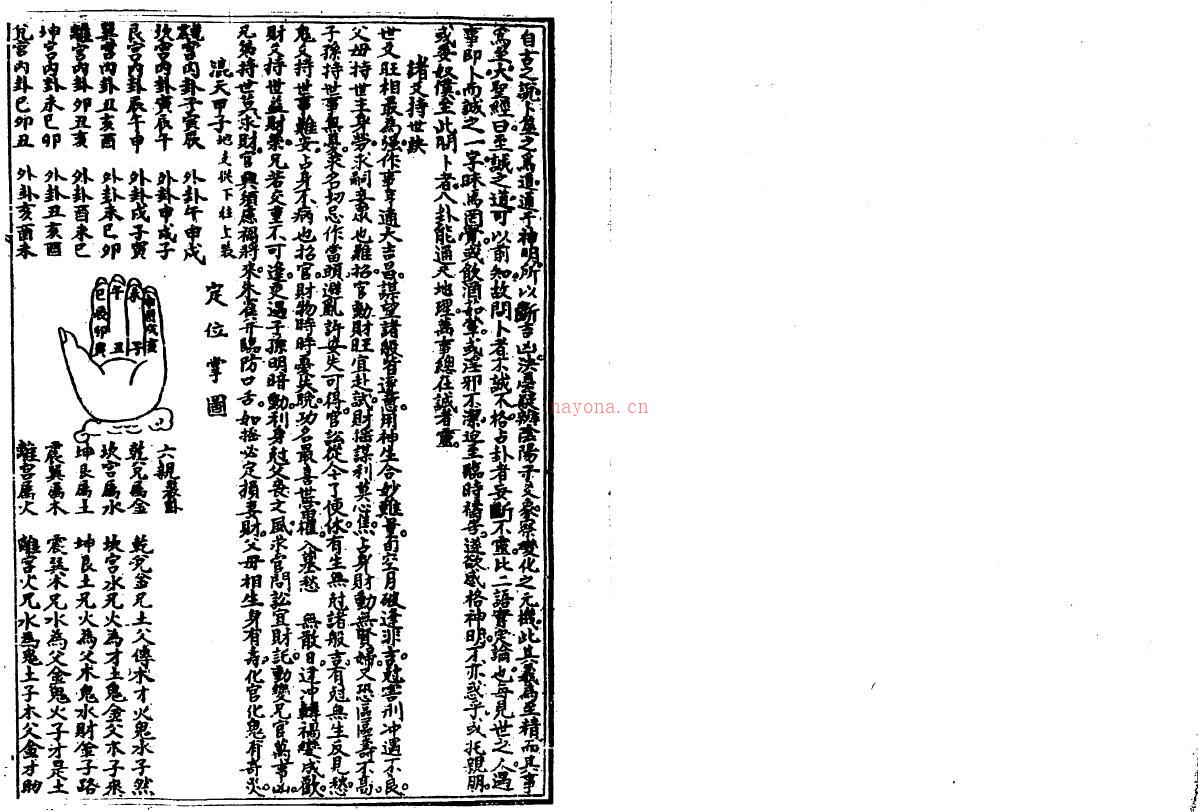 自古之說卜筮之為道通乎神明所以斷吉凶決憂疑辨陰陽于爻象察變化之元機此其義為至精而其事
為至大聖經曰至誠之道可以前知故問卜者不誠不格占卦者妄斷不靈此二語實定論也每見世之人遇
事即卜而誠之一字昧焉罔覺或飲酒茹葷或淫邪不潔迫至臨時禱告遂欲感格神明不亦惑乎或托親朋
或委奴僕至此問卜者八卦能通天地理萬事總在誠者靈
諸爻持世訣
世爻旺相最為强作事亨通大吉昌謀望諸般皆遂意用神生合妙難量旬空月破逢非吉尅害刑冲遇不良
父母持世主身勞求嗣妾衆也難招官動財旺宜赴試財摇謀利莫心焦占身財動無賢婦又恐區區壽不高
子孫持世事無憂求名切忌作當頭避亂許安失可得官訟從今了便休有生無尅諸般吉有尅無生反見愁
鬼爻持世事難安占身不病也招官財物時時憂失脫功名最喜世當權入墓愁 無散日逢冲轉禍變成歡
財爻持世益財榮兄若交重不可逢更遇子孫明暗動利身尅父喪文風求官問訟宜財託動變兄官萬事凶
兄弟持世莫求財官興須慮禍將來朱雀并臨防口舌如摇必定損妻財父母相生身有壽化官化鬼有奇災
渾天甲子地支從下往上裝
乾宮內卦子寅辰 外卦午申戌
坎宮內卦寅辰午 外卦申戌子
艮宮內卦辰午申 外卦戌子寅
巽宮內卦丑亥酉 外卦未巳卯
離宮內卦卯丑亥 外卦酉未巳
坤宮內卦未巳卯 外卦丑亥酉
兌宮內卦巳卯丑 外卦亥酉未
定位掌圖
巳辰卯寅
午丑
未子
申酉戌亥
六親
乾兌屬金
坎宮屬水
坤艮屬土
震巽屬木
離宮屬火
乾兌金兄土父傳木才火鬼水子然
坎宮水兄火為才土鬼金父木子來
坤艮土兄火為父木鬼水財金子路
震巽木兄水為父金鬼火子才是土
離宮火兄水為鬼土子木父金才助
hayona.cn